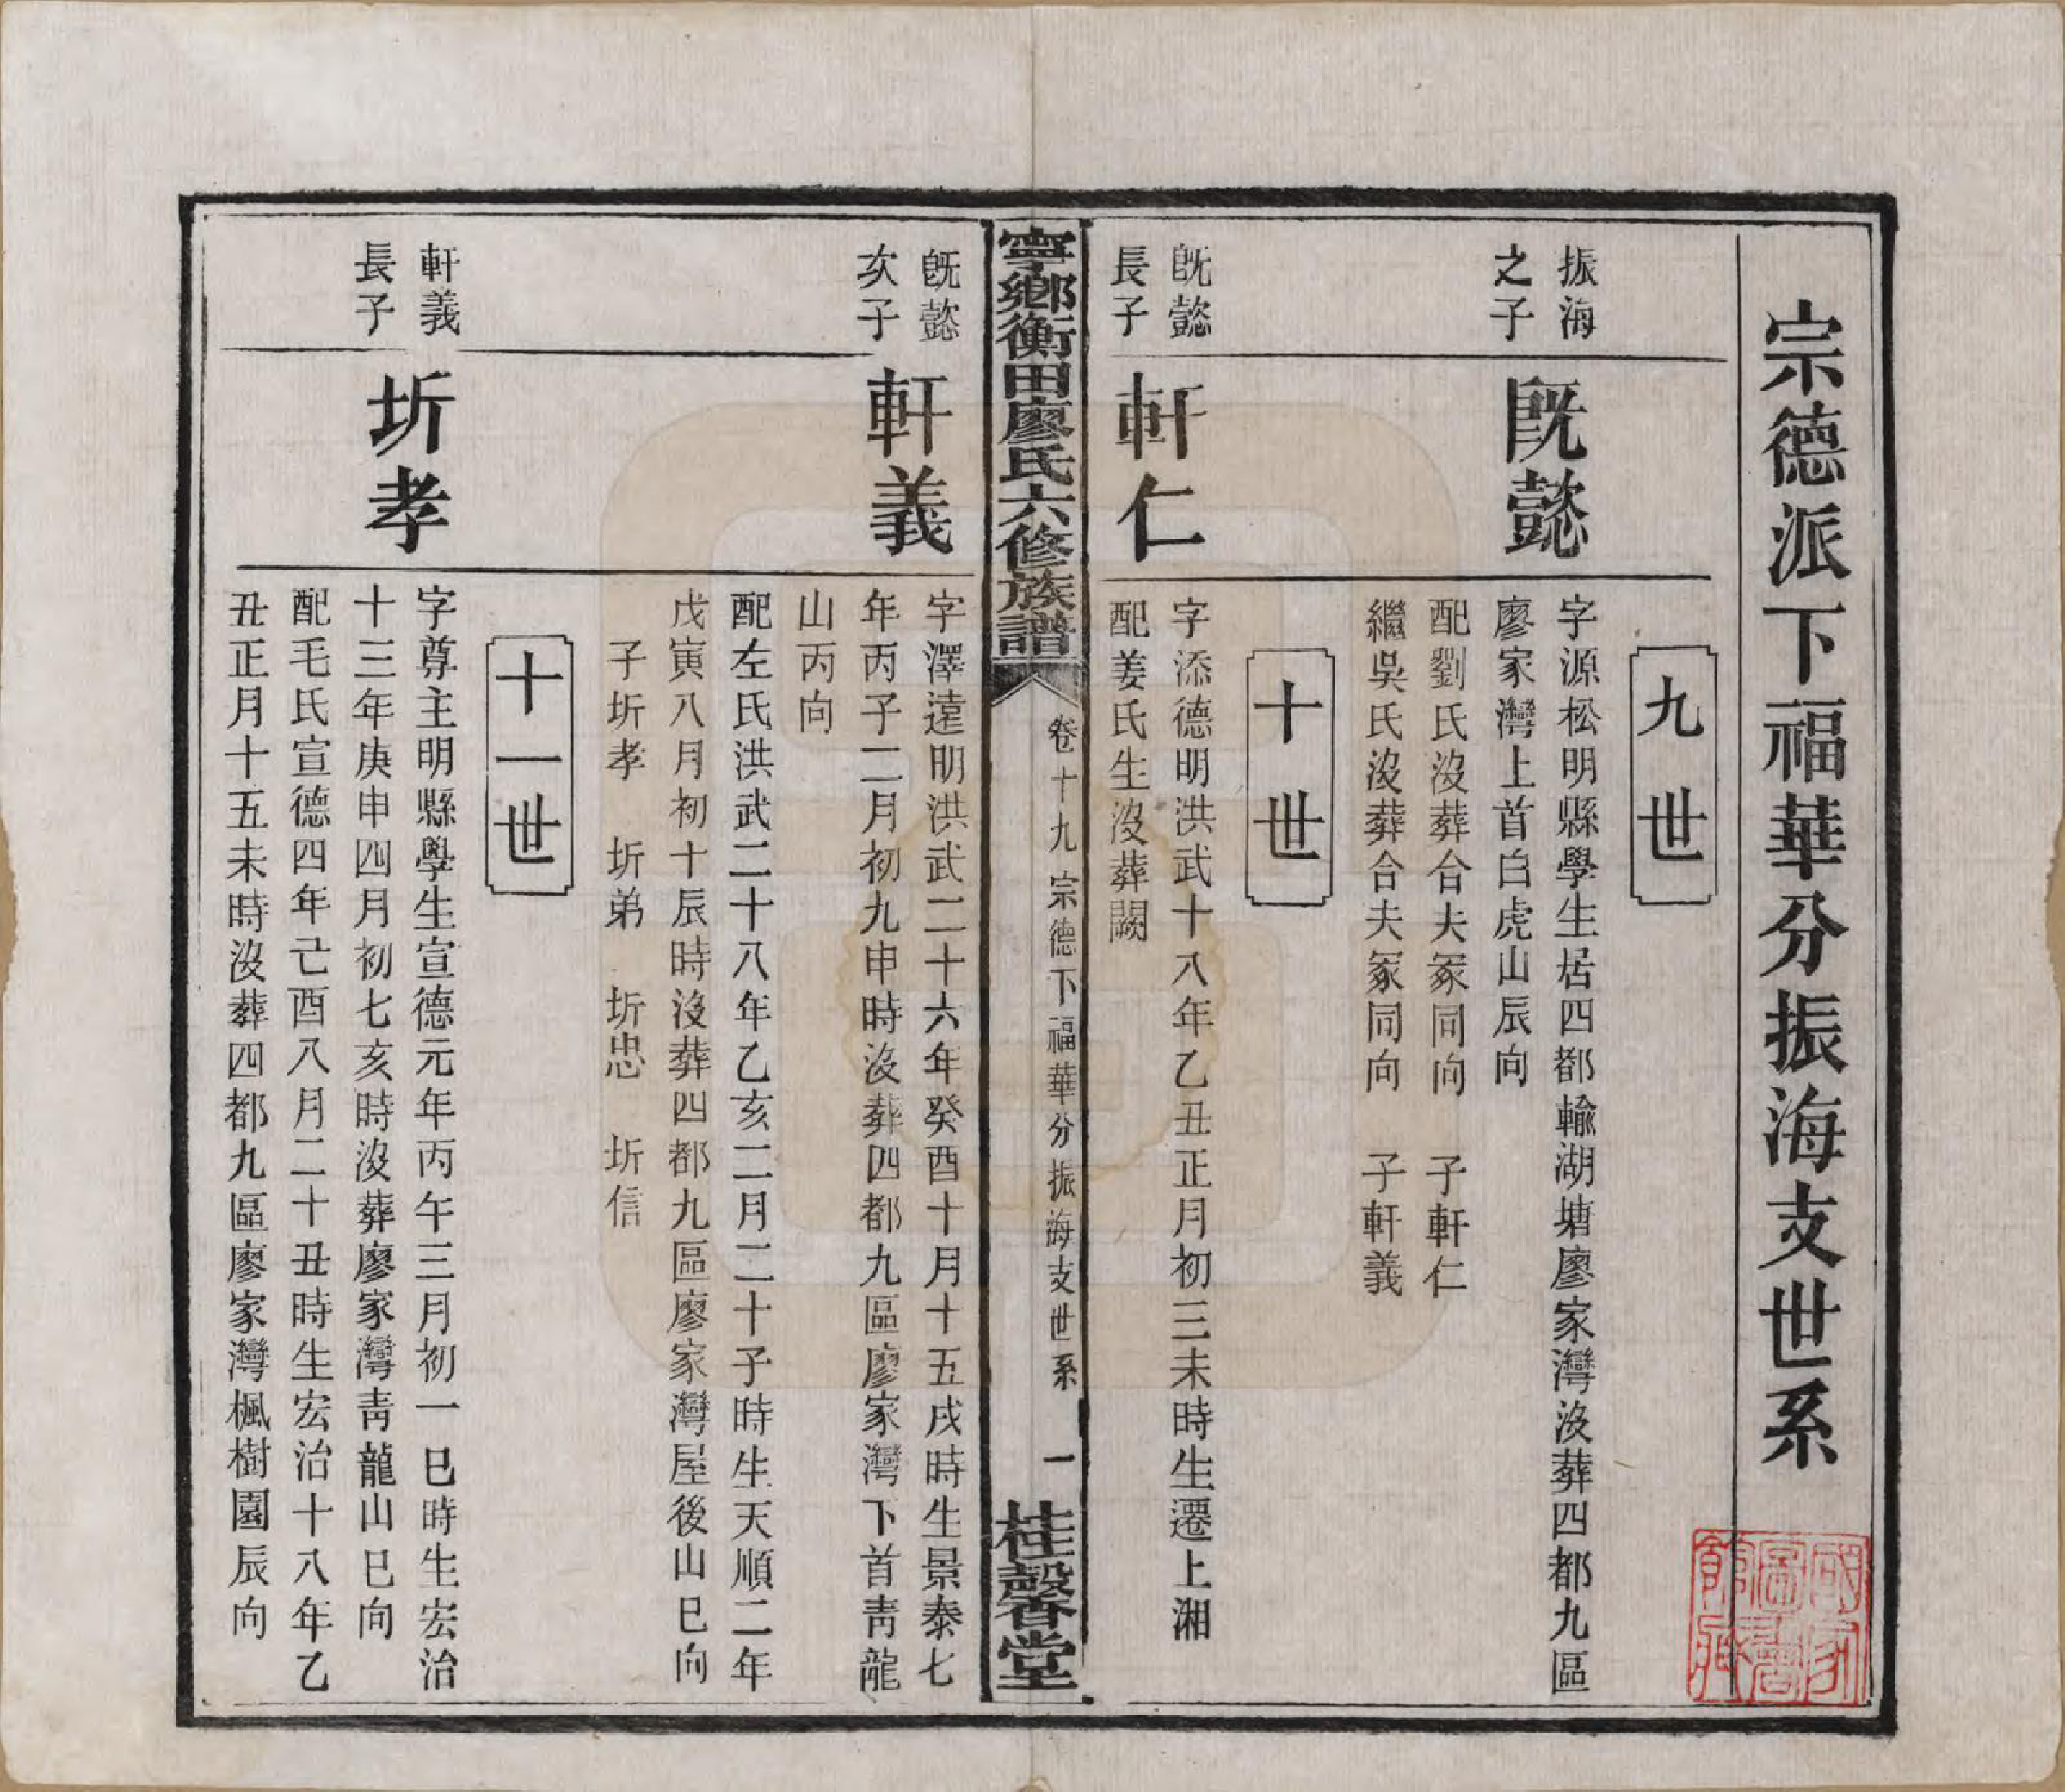 宗德派下福華分振海支世系
九世
振海
之子
旣懿
字源松明縣學生居四都輸湖塘廖家灣沒葬四都九區
廖家灣上首白虎山辰向
配劉氏沒葬合夫冢同向　子軒仁
繼吳氏沒葬合夫冢同向　子軒義
十世
旣懿
長子
軒仁
字添德明洪武十八年乙丑正月初三未時生遷上湘
配姜氏生沒葬闕
寧鄉衡田廖氏六修族譜
卷十九　宗德下福華分振海支世系　一
桂馨堂
旣懿
次子
軒義
字澤遠明洪武二十六年癸酉十月十五戌時生景泰七
年丙子二月初九申時沒葬四都九區廖家灣下首靑龍
山丙向
配左氏洪武二十八年乙亥二月二十子時生天順二年
戊寅八月初十辰時沒葬四都九區廖家灣屋後山巳向
子圻孝　圻弟　圻忠　圻信
十一世
軒義
長子
圻孝
字尊主明縣學生宣德元年丙午三月初一巳時生宏治
十三年庚申四月初七亥時沒葬廖家灣靑龍山巳向
配毛氏宣德四年己酉八月二十丑時生宏治十八年乙
丑正月十五未時沒葬四都九區廖家灣楓樹園辰向
國家圖書館藏